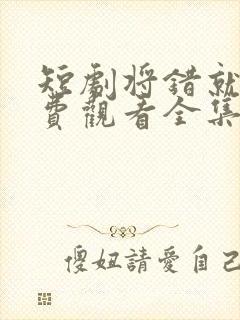 短劇將錯就
費觀看全集
傻妞請愛自己